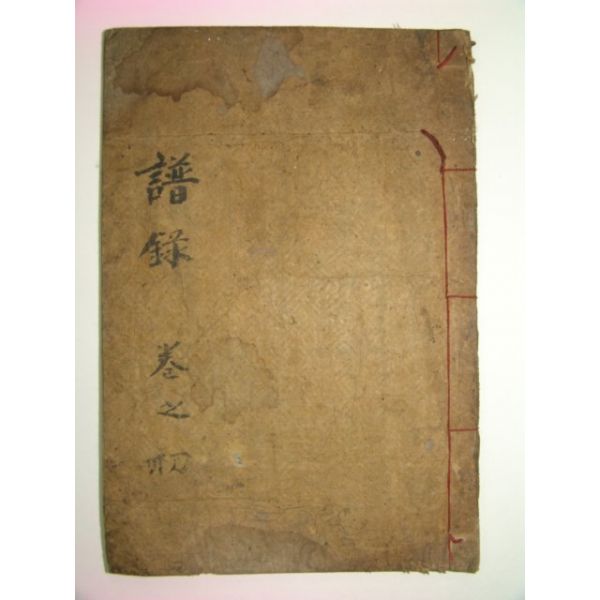 譜錄 卷之初